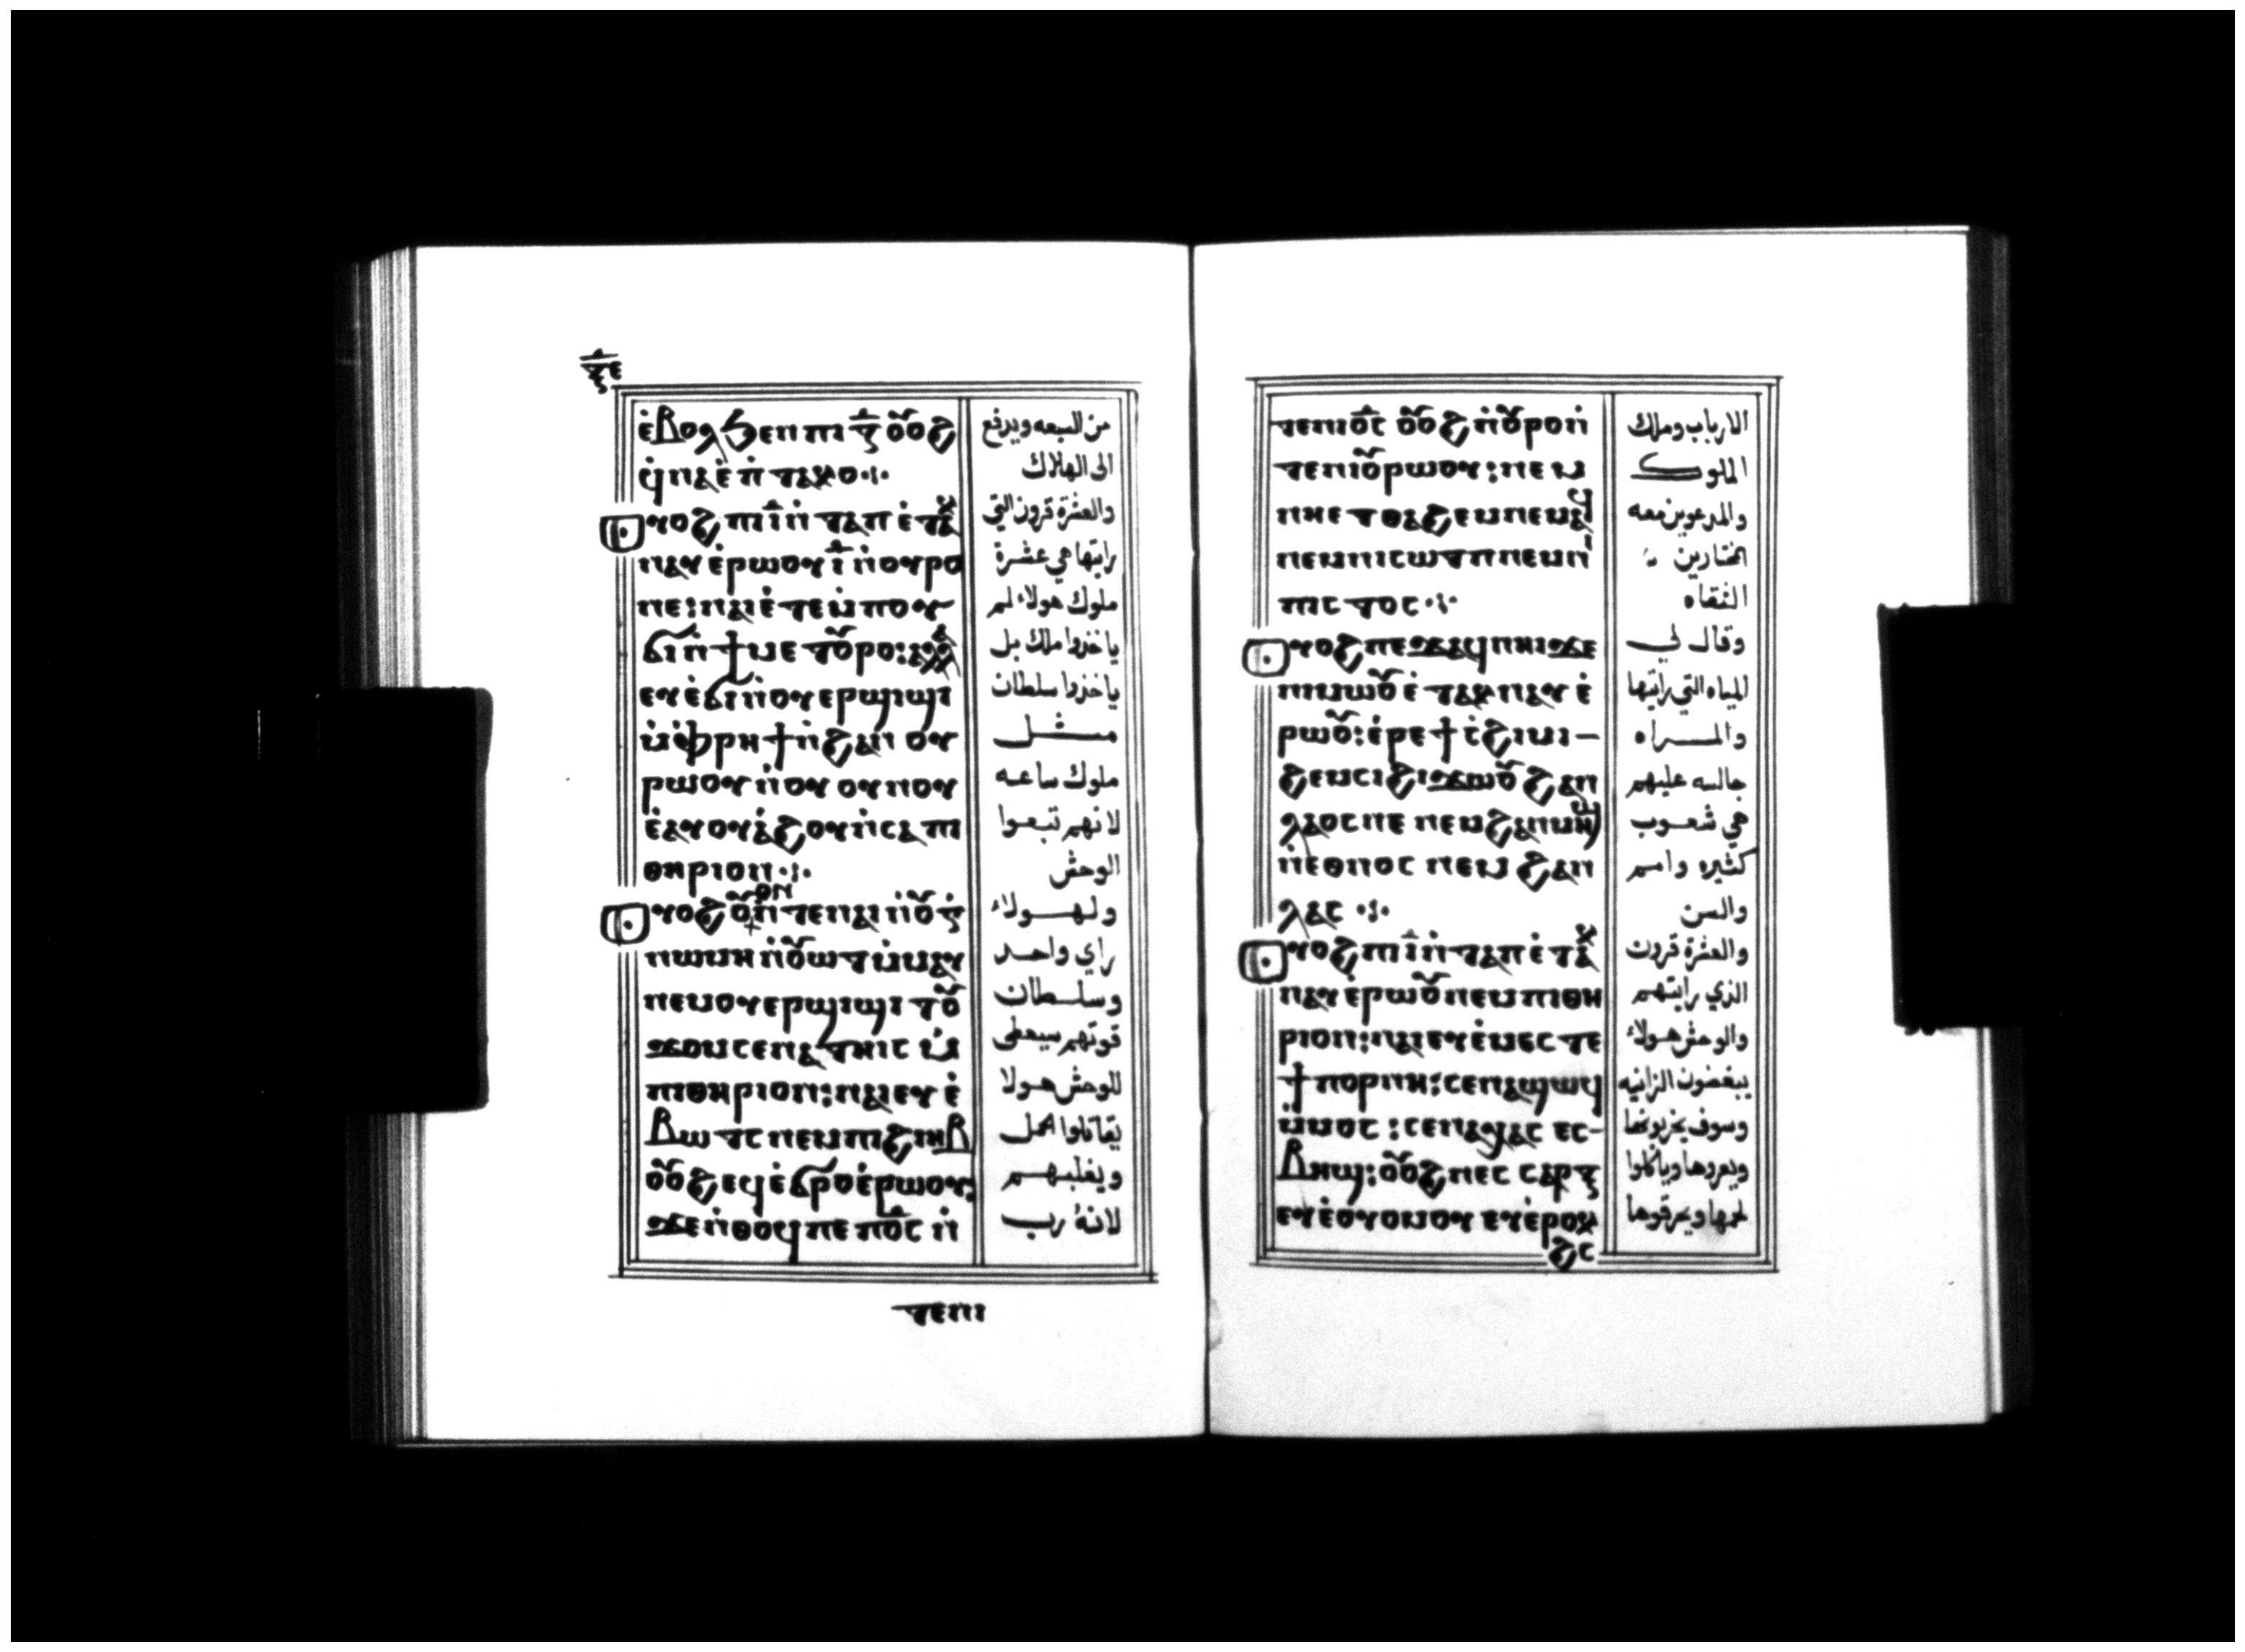 ⲝ̅ⲉ
ⲉ̀ⲃⲟⲗϧⲉⲛⲡⲓ ⲍ̅ ⲟⲩⲟϩ
ϥ̀ⲛⲁⲉ̀ ⲡ̀ⲧⲁⲕⲟ·:·
ⲟⲩⲟϩ ⲡⲓⲓ̅ ⲛ̀ⲧⲁⲡ ⲉ̀ⲧⲁⲕ
ⲛⲁⲩ ⲉ̀ⲣⲱⲟⲩ ⲓ̅ ⲛ̀ⲟⲩⲣⲟ
ⲛⲉ: ⲛⲁⲓ ⲉ̀ⲧⲉⲙ̀ⲡⲟⲩ
ϭⲓ ⲛ̀ϯⲙⲉⲧⲟⲩⲣⲟ: ⲁⲗⲗⲁ
ⲉⲩⲉ̀ϭⲓ ⲛ̀ⲟⲩⲉⲣϣⲓϣⲓ
ⲙ̀ⲫ̀ⲣⲏϯ ⲛ̀ϩⲁⲛ ⲟⲩ
ⲣⲱⲟⲩ ⲛ̀ⲟⲩ ⲟⲩⲛⲟⲩ
ⲉ̀ⲁⲩⲟⲩⲁ̀ϩⲟⲩ ⲛ̀ⲥⲁ ⲡⲓ
ⲑⲏⲣⲓⲟⲛ·:·
ⲟⲩⲟϩ ⲟⲩⲛ̀ⲧⲉ ⲛⲁⲓ ⲛ̀ⲟⲩⲅ̀
ⲛⲱⲙⲏ ⲛ̀ⲟⲩⲱⲧ ⲙ̀ⲙⲁⲩ
ⲛⲉⲙ ⲟⲩⲉⲣϣⲓϣⲓ ⲧⲟⲩ
ϫⲟⲙ ⲥⲉⲛⲁⲧⲏⲓⲥ ⲙ̀
ⲡⲓⲑⲏⲣⲓⲟⲛ: ⲛⲁⲓ ⲉⲩⲉ̀
ⲃⲱⲧⲥ ⲛⲉⲙ ⲡⲓϩⲓⲏⲃ
ⲟⲩⲟϩ ⲉϥⲉ̀ϭⲣⲟ ⲉ̀ⲣⲱⲟⲩ
ϫⲉ ⲛ̀ⲑⲟϥ ⲡⲉ ⲡⲟ̅ⲥ ⲛ̀
ⲧⲉⲛⲓ
من السبعه ويدفع
الى الهلاك
والعشرة قرون التي
رايتها هي عشرة
ملوك هولاء لم
ياخذوا ملك بل
ياخذوا سلطان
مثل
ملوك ساعه
لانهم تبعوا
الوحش
ولهولاء
راي واحد
وسلطان
قوتهم سيعطى
للوحش هولا
يقاتلوا الحمل
ويغلبهم
لانه رب
ⲧⲉ ⲛⲓⲟ̅ⲥ ⲟⲩⲟϩ ⲛ̀ⲟⲩⲣⲟ ⲛ̀
ⲧⲉ ⲛⲓⲟⲩⲣⲱⲟⲩ: ⲛⲉⲙ
ⲛⲏⲉⲧⲑⲁϩⲉⲙ ⲛⲉⲙⲁϥ
ⲛⲉⲙ ⲛⲓⲥⲱⲧⲡ ⲛⲉⲙ ⲛⲓ
ⲡⲓⲥⲧⲟⲥ·:·
ⲟⲩⲟϩ ⲡⲉϫⲁϥ ⲛⲏⲓ ϫⲉ
ⲛⲓⲙⲱⲟⲩ ⲉ̀ⲧⲁⲕⲛⲁⲩ ⲉ̀
ⲣⲱⲟⲩ: ⲉ̀ⲣⲉ ϯⲥ̀ϩⲓⲙⲓ
ϩⲉⲙⲥⲓ ϩⲓϫⲱⲟⲩ ϩⲁⲛ
ⲗⲁⲟⲥ ⲛⲉ ⲛⲉⲙ ϩⲁⲛⲙⲏϣ
ⲛ̀ⲉⲑⲛⲟⲥ ⲛⲉⲙ ϩⲁⲛ
ⲗⲁⲥ·:·
ⲟⲩⲟϩ ⲡⲓⲓ̅ ⲛ̀ⲧⲁⲡ ⲉ̀ⲧⲁⲕ
ⲛⲁⲩ ⲉ̀ⲣⲱⲟⲩ ⲛⲉⲙ ⲡⲓⲑⲏ
ⲣⲓⲟⲛ: ⲛⲁⲓ ⲉⲩⲉ̀ⲙⲉⲥⲧⲉ
ϯⲡⲟⲣⲛⲏ: ⲥⲉⲛⲁϣⲱϥ
ⲙ̀ⲙⲟⲥ: ⲥⲉⲛⲁⲁⲓⲥ ⲉⲥ-
ⲃⲏϣ: ⲟⲩⲟϩ ⲛⲉⲥ ⲥⲁⲣⲝ
ⲉⲩⲉ̀ⲟⲩⲟⲙⲟⲩ ⲉⲩⲉ̀ⲣⲟⲕ
ϩⲥ
الارباب وملك
الملوك
والمدعوين معه
المختارين
الثقاه
وقال لي
المياه التي رايتها
والمراه
جالسه عليهم
هي شعوب
كثيره وامم
والسن
والعشرة قرون
الذي رايتهم
والوحش هولاء
يبغضون الزانيه
وسوف يخربونها
ويعروها وياكلوا
لحمها ويحرقوها